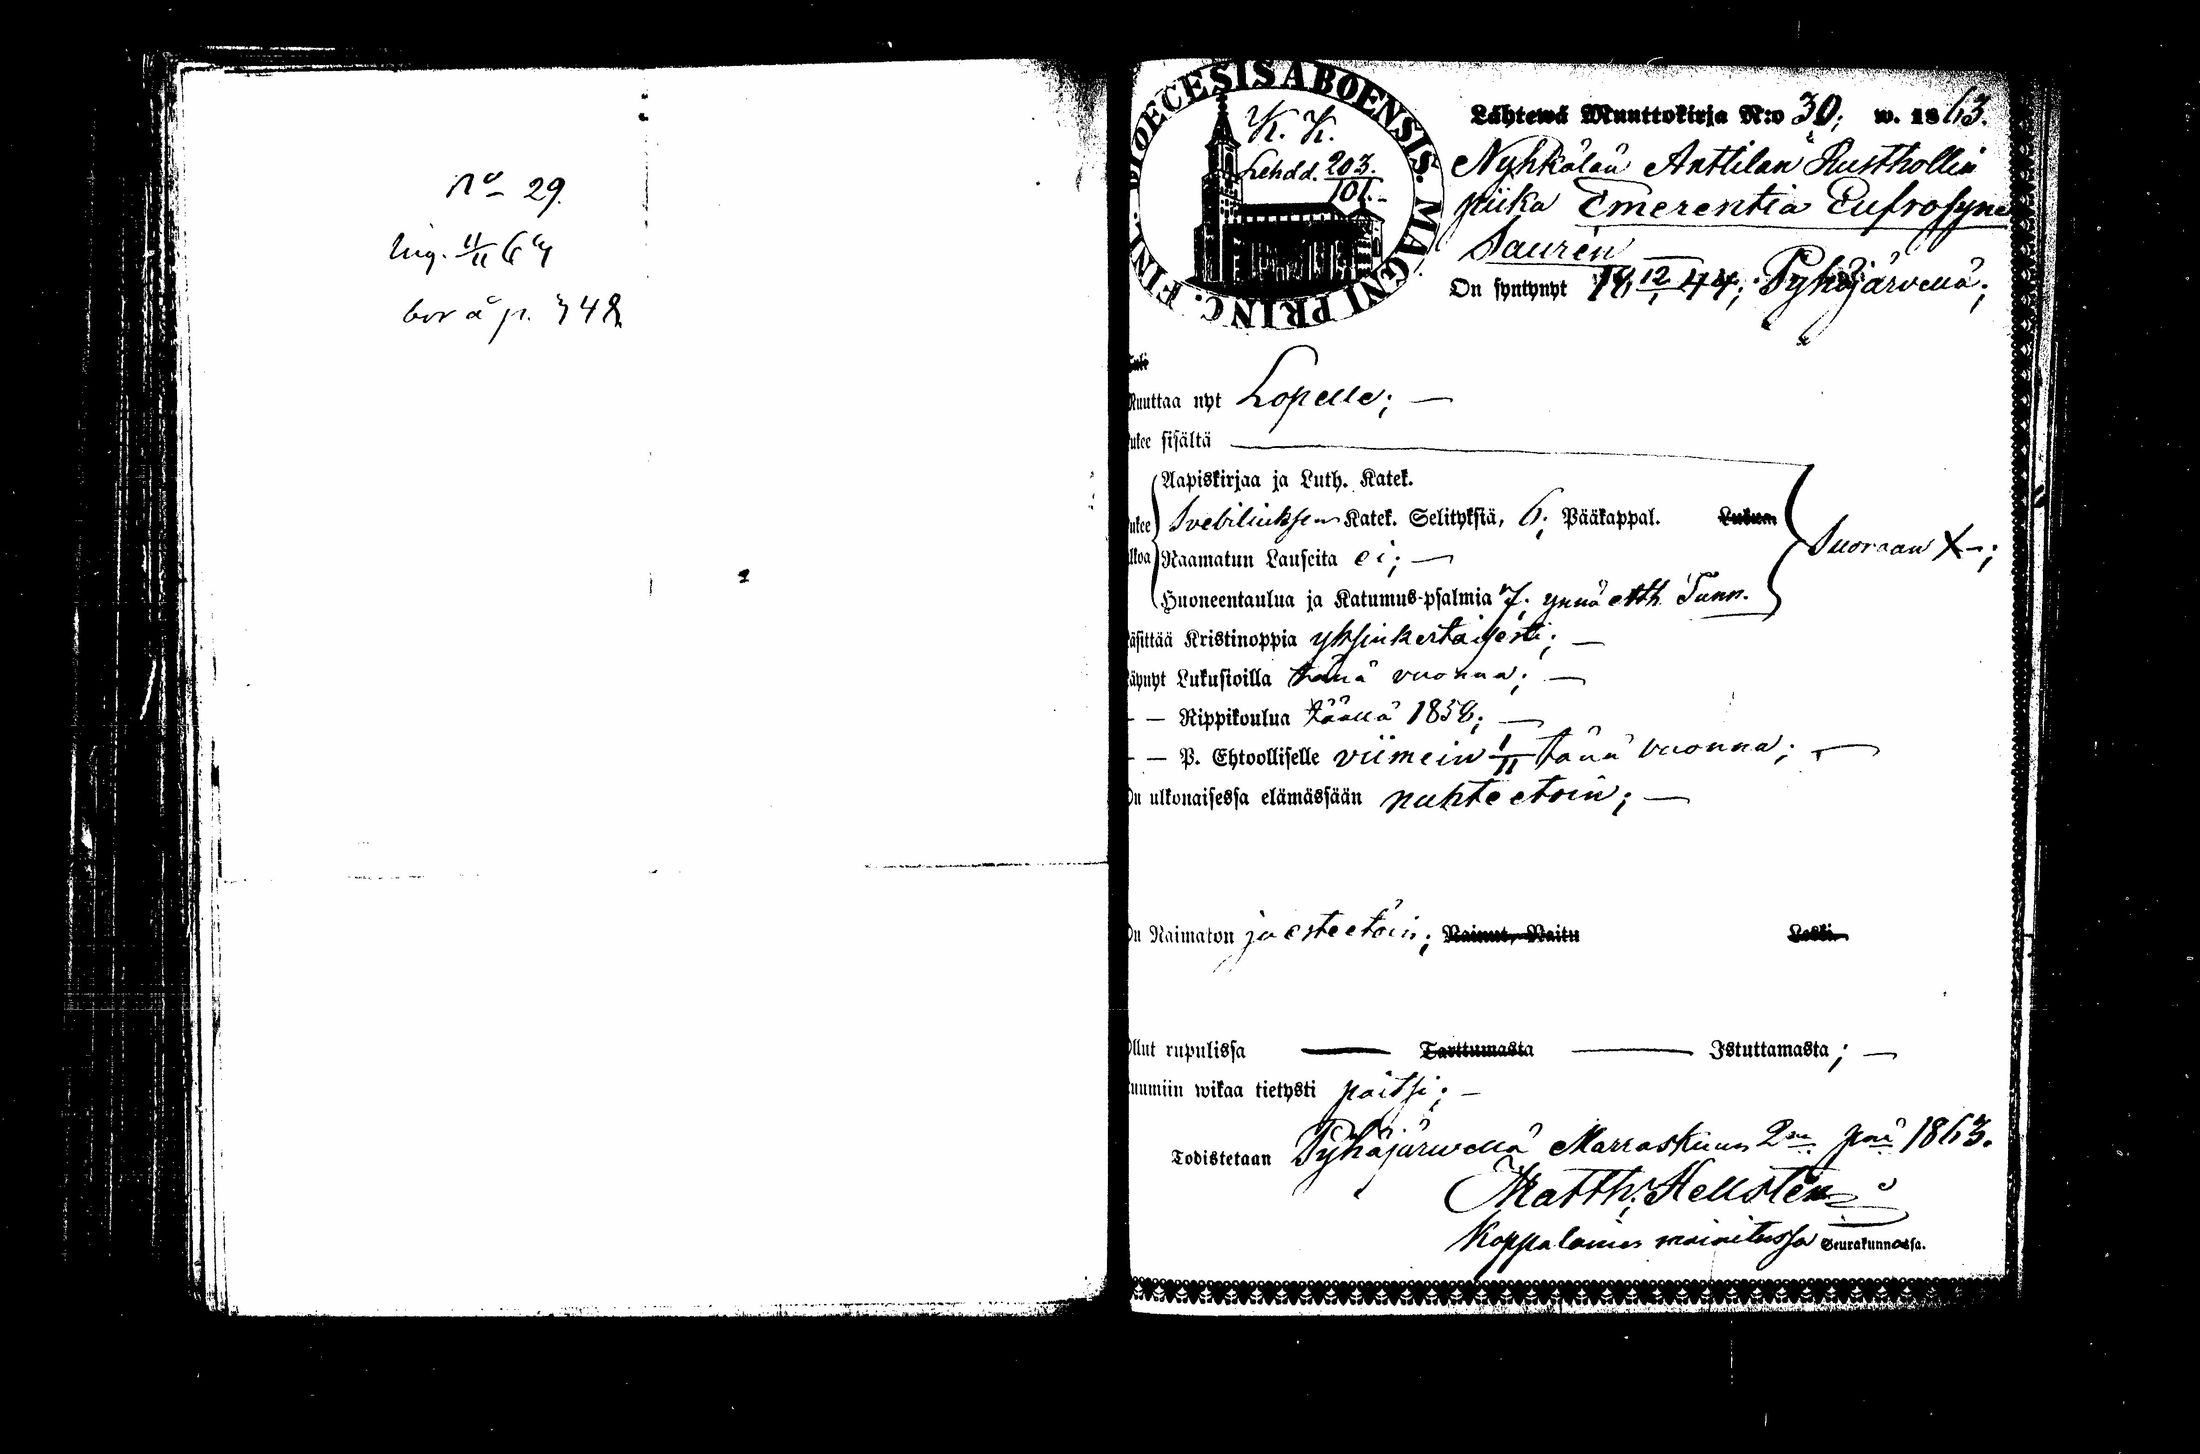 No 29.
bor å p. 342
DIOECESIS ABOENSIS. MAGNI PRINC. FINL.
K. K.
Lehdd. 203.
101.
Lähtewä Muuttokirja N:o 30; w. 1863.
Nyhkälän Anttilan Rusthollin
piika Emerentia Eufrosyne
Saurén
On syntynyt 18 12/1 44; Pyhäjärvellä;
Tuli
Muuttaa nyt Lopelle; —
ukee sisältä
Aapiskirjaa ja Luth. Katek.
ukee Svebiliuksen Katek. Selityksiä, 6; Pääkappal. Lukun
lkoa Raamatun Lauseita ei; —
Suoraan X—;
Huoneentaulua ja Katumus-psalmia 7; ynnä Ath. Tunn.
äsittää Kristinoppia yksinkertaisesti; —
äynyt Lukusioilla tänä vuonna; —
— — Rippikoulua täällä 1858; —
— — P. Ehtoolliselle viimein 1/11 tänä vuonna; —
On ulkonaisessa elämässään nuhteetoin; —
On Naimaton ja esteetöin; Nainut, Naitu Leski
Ollut rupulissa — Tarttumasta — Istuttamasta; —
uumiin wikaa tietysti paitsi; —
Todistetaan Pyhäjärwellä Marraskuun 2na pnä 1863.
Matth. Hellstén
Kappalainen mainitussa Seurakunnassa.